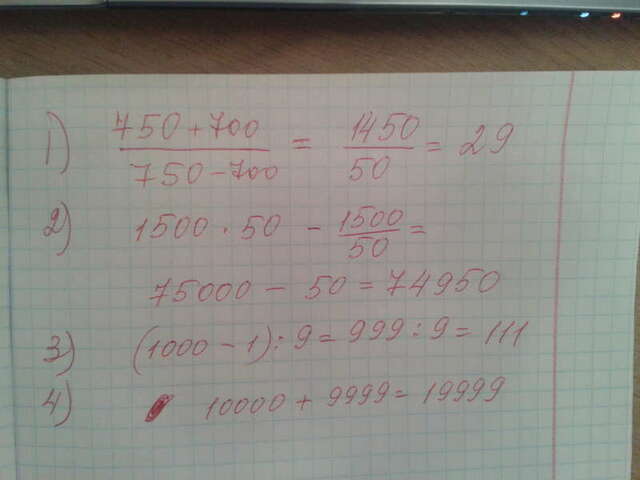 1) 750+700 / 750-700 = 1450 / 50 = 29
2) 1500 · 50 - 1500 / 50 =
75000 - 50 = 74950
3) (1000 - 1) : 9 = 999 : 9 = 111
4) 10000 + 9999 = 19999